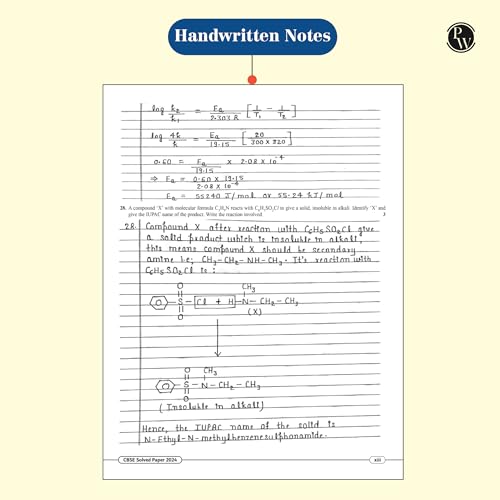 Handwritten Notes
PW
log k₂/k₁ = Ea/2.303 R [1/T₁ - 1/T₂]
log 4k/k = Ea/19.15 [20/300 x 320]
0.60 = Ea/19.15 x 2.08 x 10⁻⁴
⇒ Ea = 0.60 x 19.15/2.08 x 10⁻⁴
Ea = 55240 J/mol or 55.24 kJ/mol
28. A compound 'X' with molecular formula C₃H₉N reacts with C₆H₅SO₂Cl to give a solid, insoluble in alkali. Identify 'X' and
give the IUPAC name of the product. Write the reaction involved. 3
28. Compound X after reaction with C₆H₅SO₂Cl give
a solid product which is insoluble in alkali,
this means compound X should be secondary
amine i.e; CH₃-CH₂-NH-CH₃. It's reaction with
C₆H₅SO₂Cl is:
O CH₃
S Cl + H N-CH₂-CH₃
O (X)
O CH₃
S - N - CH₂ - CH₃
O
(Insoluble in alkali)
Hence, the IUPAC name of the solid is
N-Ethyl-N-methylbenzenesulphonamide.
CBSE Solved Paper 2024 xiii